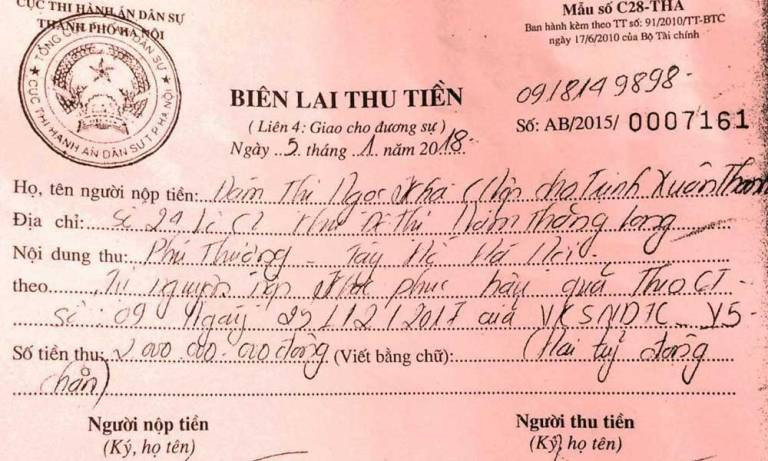 CỤC THI HÀNH ÁN DÂN SỰ
THÀNH PHỐ HÀ NỘI
Mẫu số C28-THA
Ban hành kèm theo TT số: 91/2010/TT-BTC
ngày 17/6/2010 của Bộ Tài chính
TỔNG CỤC THI HÀNH ÁN DÂN SỰ
CỤC THI HÀNH ÁN DÂN SỰ T.P HÀ NỘI
BIÊN LAI THU TIỀN
0918149898
(Liên 4: Giao cho đương sự)
Số: AB/2015/ 0007161
Ngày 5 tháng 1 năm 2018
Họ, tên người nộp tiền: Đàm Thị Ngọc Kha (Nộp cho Trịnh Xuân Thanh
Địa chỉ: Số 24 Khu Đô Thị Nam Thăng Long
Nội dung thu: Phú Thượng - Tây Hồ Hà Nội
theo Tự nguyện nộp khắc phục hậu quả Theo CT
Số 09 Ngày 25/12/2017 của VKSNDTC V5
Số tiền thu: 2.000.000.000 đồng (Viết bằng chữ): (Hai tỷ đồng
chẵn)
Người nộp tiền
Người thu tiền
(Ký, họ tên)
(Ký, họ tên)